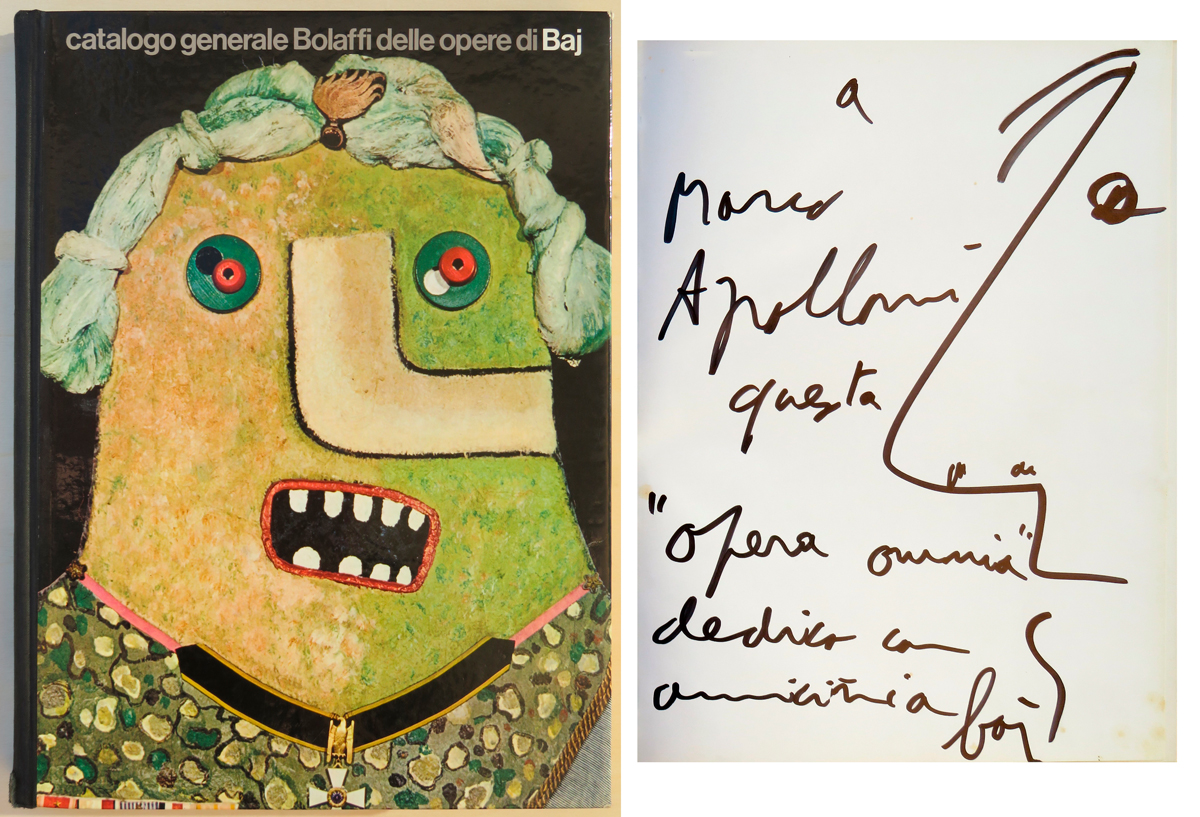 catalogo generale Bolaffi delle opere di Baj
a
Marco
Apolloni
questa
"opera omnia"
dedico con
amicizia baj